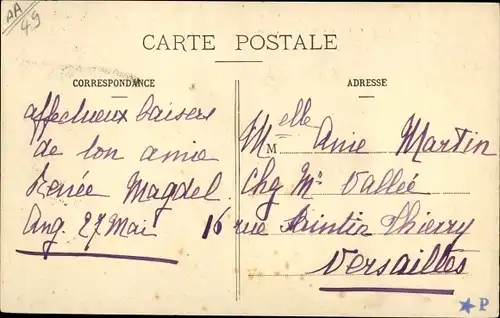 AA
49
CARTE POSTALE
CORRESPONDANCE
affectueux baisers
de ton amie
Renée Magdel
Ang. 27 Mai
ADRESSE
M elle Anie Martin
Chg Mr Vallée
16 rue Thierry
Versailles
★P